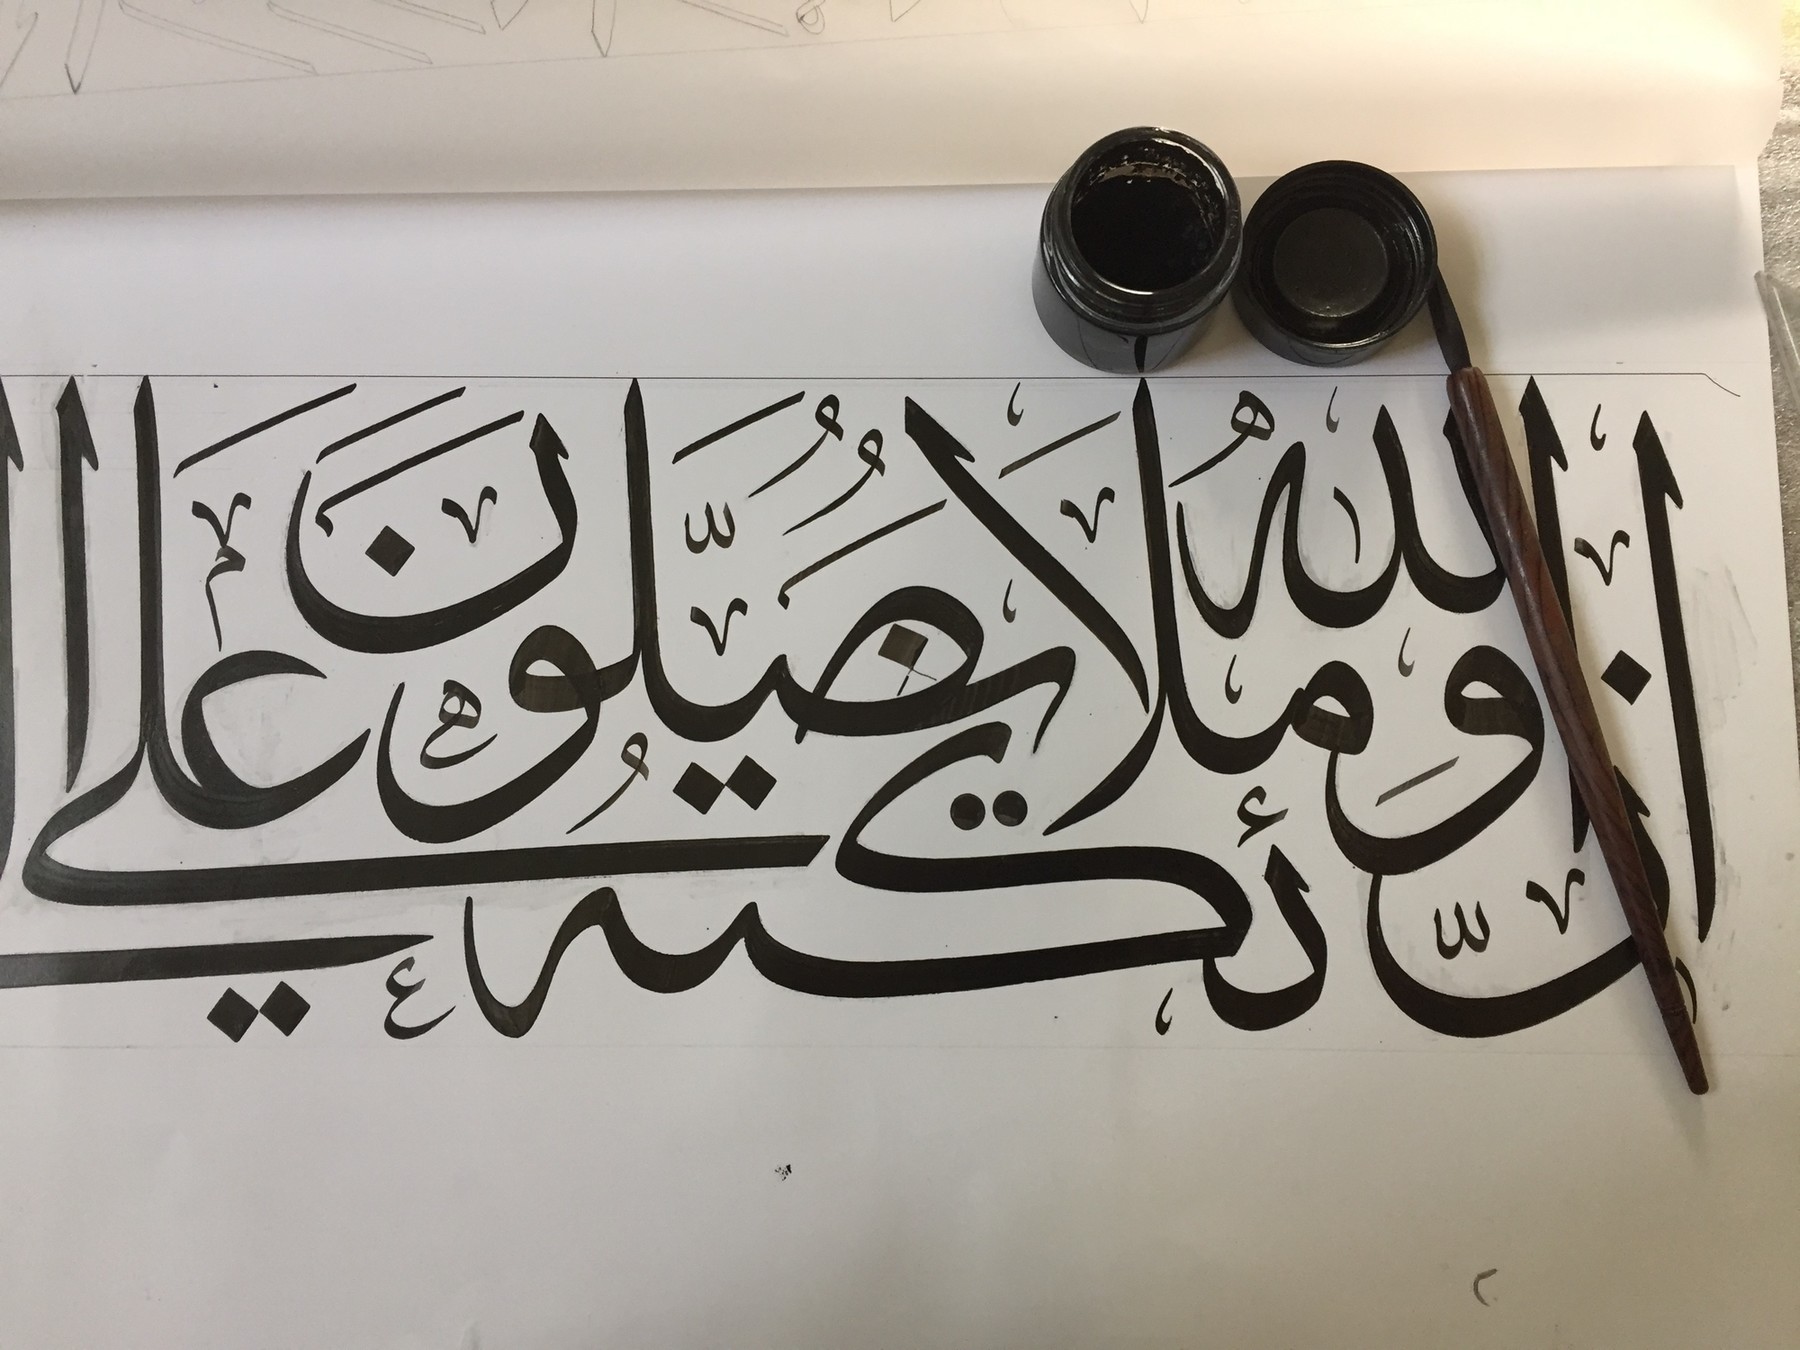 إن الله وملائكته يصلون على ا